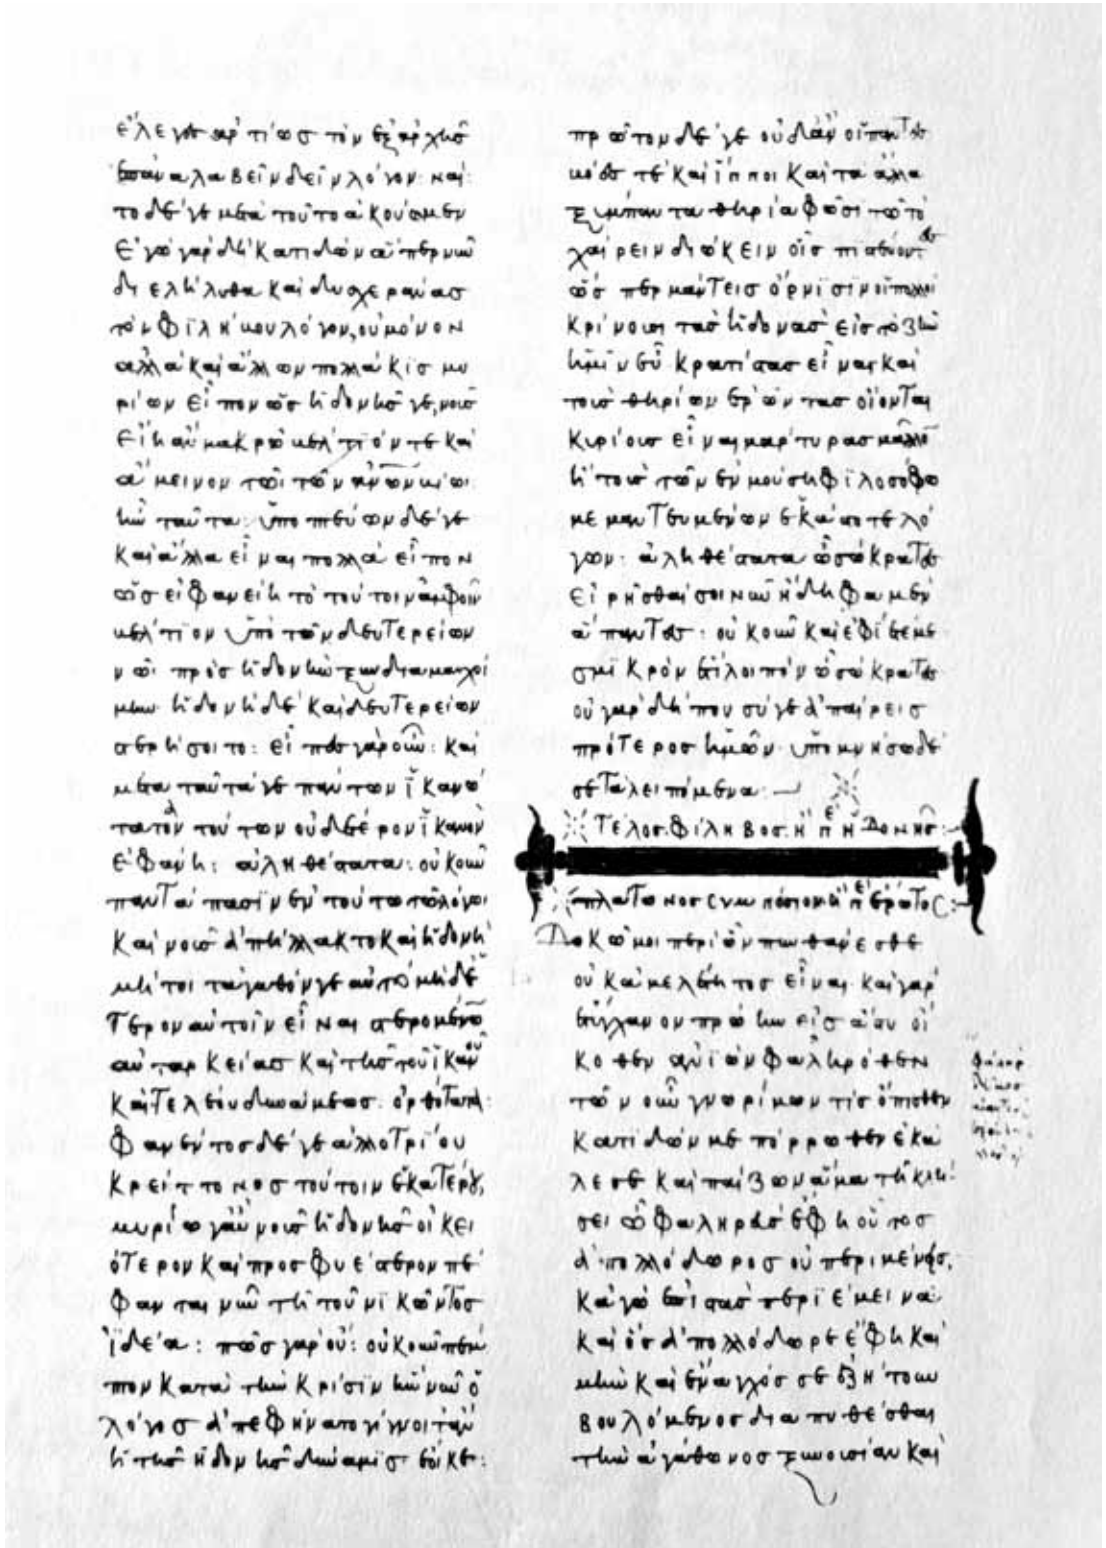 ἔλεγες ἀρτίως τὸν ἐξαρχῆς
ἐπαναλαβεῖν δεῖν λόγον: ναί:
τὸ δέ γε μετὰ τοῦτο ἀκούωμεν
ἐγὼ γὰρ δὴ κατιδὼν ἅπερ νῦν
διελήλυθα καὶ δυσχεράνας
τὸν φιλήβου λόγον, οὐ μόνον
ἀλλὰ καὶ ἄλλων πολλάκις μυ
ρίων εἶπον ὡς ἡδονῆς γε, νοῦς
εἴη αὖ μακρῶ βέλτιόν τε καὶ
ἄμεινον τῶι τῶν ἀνων βίωι
ἦν ταῦτα: ὑποπτεύων δέ γε
καὶ ἄλλα εἶναι πολλὰ εἶπον
ὡς εἰ φανείη τὸ τούτοιν ἀμφοῖν
βέλτιον ὑπὸ τῶν δευτερείων
νῶι πρὸς ἡδονὴν ξυνδιαμαχοί
μην ἡδονὴ δὲ καὶ δευτερείων
στερήσοιτο: εἶπες γὰρ οὖν: καὶ
μετὰ ταῦτά γε πάντων ἱκανώ
τατον τούτων οὐδέτερον ἱκανὸν
ἐφάνη: ἀληθέστατα: οὐκοῦν
παντάπασιν ἐν τούτω τῶ λόγωι
καὶ νοῦς ἀπήλλακτο καὶ ἡδονὴ
μή τοι τἀγαθόν γε αὐτὸ μηδέ
τερον αὐτοῖν εἶναι στερομένω
αὐταρκείας καὶ τῆς τοῦ ἱκανοῦ
καὶ τελέου δυνάμεως: ὀρθότατα:
φανέντος δέ γε ἄλλου τρίτου
κρείττονος τούτοιν ἑκατέρου,
μυρίω γ' αὖ νοῦς ἡδονῆς οἰκει
ότερον καὶ προσφυέστερον πέ
φανται νῦν τῆ τοῦ νικῶντος
ἰδέα: πῶς γὰρ οὔ: οὐκοῦν πέμ
πτον κατὰ τὴν κρίσιν ἣν νῦν ὁ
λόγος ἀπεφήνατο γίγνοιτ' ἂν
ἡ τῆς ἡδονῆς δύναμις: ἔοικε:
πρῶτον δέ γε οὐδ' ἂν οἱ πάντες
βόες τε καὶ ἵπποι καὶ τὰ ἄλλα
ξύμπαντα θηρία φῶσι τῶ τὸ
χαίρειν διώκειν οἷς πιστεύοντες
ὥσπερ μάντεις ὄρνισιν οἱ πολλοὶ
κρίνουσι τὰς ἡδονὰς εἰς τὸ ζῆν
ἡμῖν εὖ κρατίστας εἶναι καὶ
τοὺς θηρίων ἔρωντας οἴονται
κυρίους εἶναι μάρτυρας μᾶλλον
ἢ τοὺς τῶν ἐν μούση φιλοσόφω
μεμαντευμένων ἑκάστοτε λό
γων· ἀληθέστατα ὦ σώκρατες
εἰρῆσθαί σοι νῦν ἤδη φαμὲν
ἅπαντες: οὐκοῦν καὶ ἀφίετέ με
σμικρὸν ἔτι λοιπὸν ὦ σώκρατες
οὐ γὰρ δήπου σύ γε ἀπαίρεις
πρότερος ἡμῶν· ὑπομνήσω δέ
σε τὰ λειπόμενα:
Τέλος· φίληβος· ἢ πε ἡδονῆς:
πλάτωνος συμπόσιον ἢ πε ἔρωτος:
Δοκῶ μοι περὶ ὧν πυνθάνεσθε
οὐκ ἀμελέτητος εἶναι· καὶ γὰρ
ἐτύγχανον πρώην εἰς ἄστυ οἴ
κοθεν ἀνιὼν φαληρόθεν
τῶν οὖν γνωρίμων τὶς ὄπισθεν
κατιδών με πόρρωθεν ἐκά
λεσε καὶ παίζων ἅμα τῆ κλή
σει ὦ φαληρεὺς ἔφη οὗτος
ἀπολλόδωρος οὐ περιμένεις,
κἀγὼ ἐπιστὰς περιέμεινα
καὶ ὃς ἀπολλόδωρε ἔφη καὶ
μὴν καὶ ἔναγχός σε ἐζήτουν
βουλόμενος διαπυθέσθαι
τὴν ἀγάθωνος ξυνουσίαν καὶ